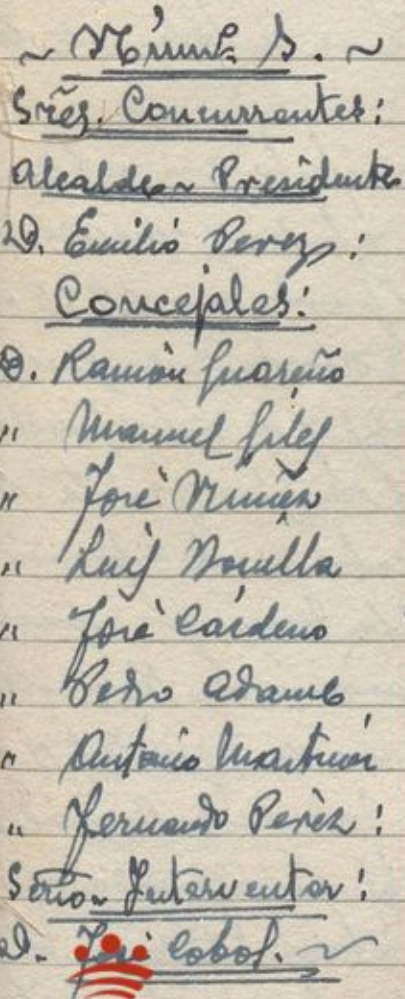 ~ Núm. 5. ~
Sres. Concurrentes:
Alcalde ~ Presidente
D. Emilio Perez:
Concejales:
D. Ramón Guareño
" Manuel Giles
" José Núñez
" Luis Bonilla
" José Cárdeno
" Pedro Adame
" Antonio Martínez
" Fernando Peréz:
Señor Interventor:
D. José Cobos. ~